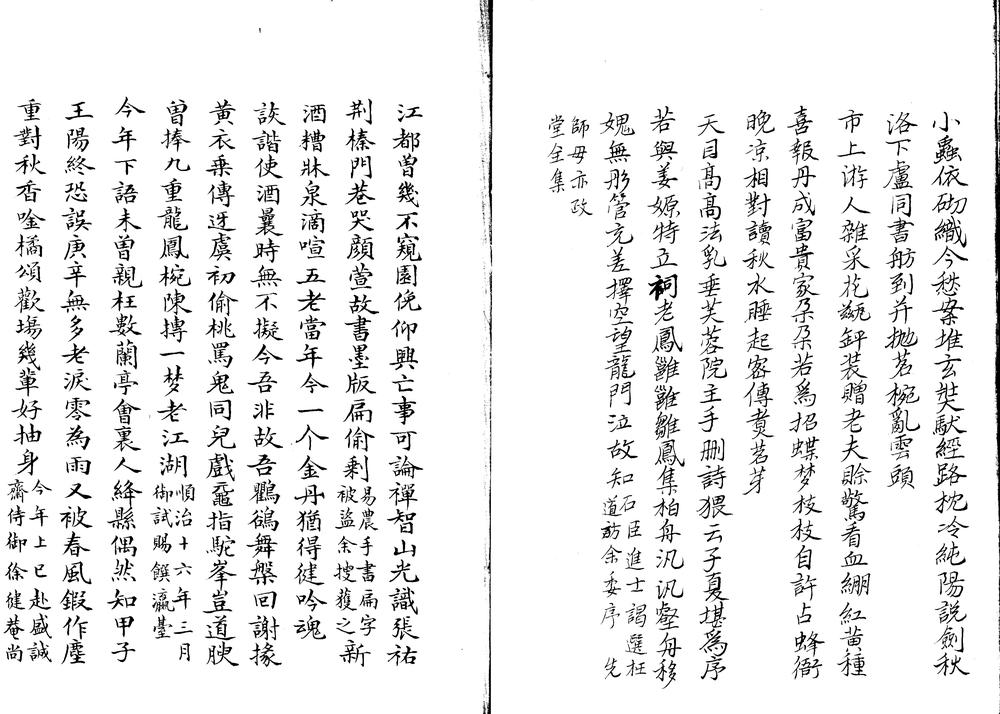 小蟲依砌織今愁案堆玄奘馱經路枕冷純陽說劍秋
洛下盧同書舫到并拋茗椀亂雲頭
市上游人雜采花甆缾裝贈老夫賒驚看血繃紅黃種
喜報丹成富貴家朶朶若爲招蝶梦枝枝自許占蜂衙
晚凉相對讀秋水睡起家傳煑茗芽
天目髙髙法乳垂芙蓉院主手删詩猥云子夏堪爲序
若與姜嫄特立祠老鳳雝雝雛鳳集柏舟汎汎壑舟移
媿無彤管充差擇空望龍門泣故知石臣進士謁選枉道訪余委序先
師母亦政堂全集
江都曽幾不窺園俛仰興亡事可論禪智山光識張祐
荆榛門巷哭顔萱故書墨版扁偷剩易農手書扁字被盜余搜獲之新
酒糟牀泉滴喧五老當年今一个金丹猶得徤吟魂
詼諧使酒曩時無不擬今吾非故吾鸜鵒舞槃回謝掾
黃衣乗傳迓虞初偷桃罵鬼同兒戲鼀指駝峯豈道腴
曽捧九重龍鳳椀陳摶一梦老江湖順治十六年三月御試賜饌瀛臺
今年下語未曽親枉數蘭亭會裏人絳縣偶然知甲子
王陽終恐誤庚辛無多老淚零為雨又被春風鍜作塵
重對秋香唫橘頌歡塲幾輩好抽身今年上巳赴盛誠齋侍御徐徤菴尚